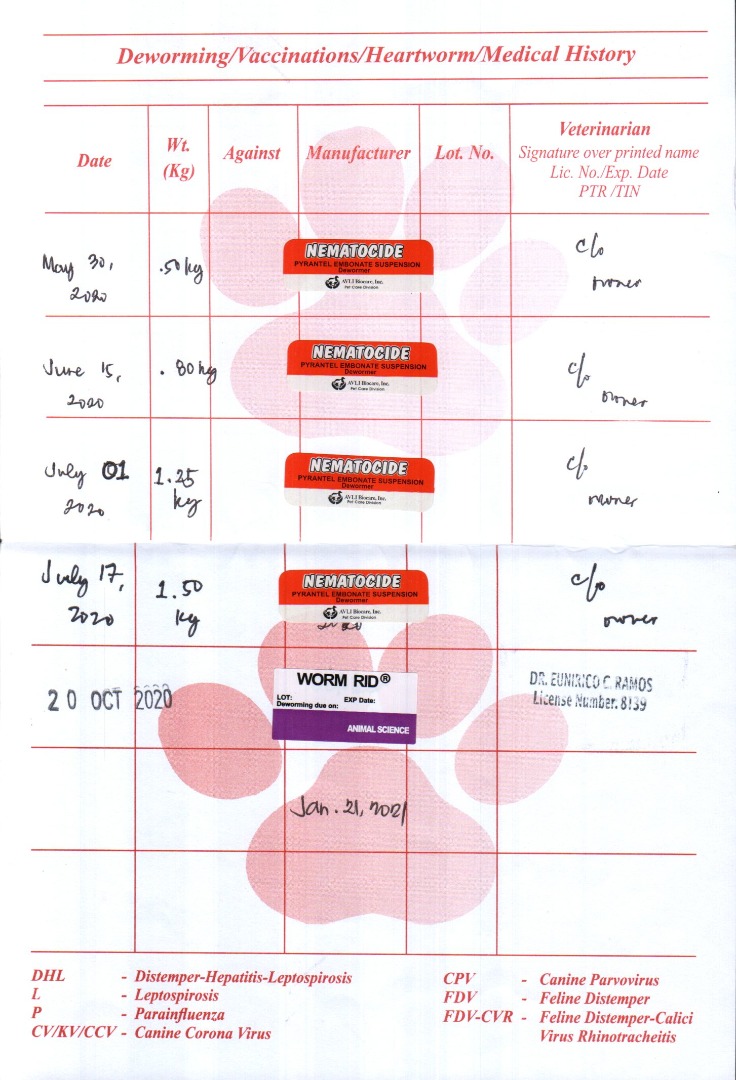 Deworming/Vaccinations/Heartworm/Medical History
Date
Wt.
(Kg)
Against
Manufacturer
Lot. No.
Veterinarian
Signature over printed name
Lic. No./Exp. Date
PTR /TIN
May 30,
2020
.50 kg
NEMATOCIDE
PYRANTEL EMBONATE SUSPENSION
Dewormer
AVLI Biocare, Inc.
Pet Care Division
c/o
owner
June 15,
2020
. 80 kg
NEMATOCIDE
PYRANTEL EMBONATE SUSPENSION
Dewormer
AVLI Biocare, Inc.
Pet Care Division
c/o
owner
July 01
2020
1.25
kg
NEMATOCIDE
PYRANTEL EMBONATE SUSPENSION
Dewormer
AVLI Biocare, Inc.
Pet Care Division
c/o
owner
July 17,
2020
1.50
kg
NEMATOCIDE
PYRANTEL EMBONATE SUSPENSION
Dewormer
AVLI Biocare, Inc.
Pet Care Division
c/o
owner
20 OCT 2020
WORM RID®
LOT:
EXP Date:
Deworming due on:
ANIMAL SCIENCE
DR. EUNIRICO C. RAMOS
License Number. 8139
Jan. 21, 2021
DHL - Distemper-Hepatitis-Leptospirosis
L - Leptospirosis
P - Parainfluenza
CV/KV/CCV - Canine Corona Virus
CPV - Canine Parvovirus
FDV - Feline Distemper
FDV-CVR - Feline Distemper-Calici
Virus Rhinotracheitis